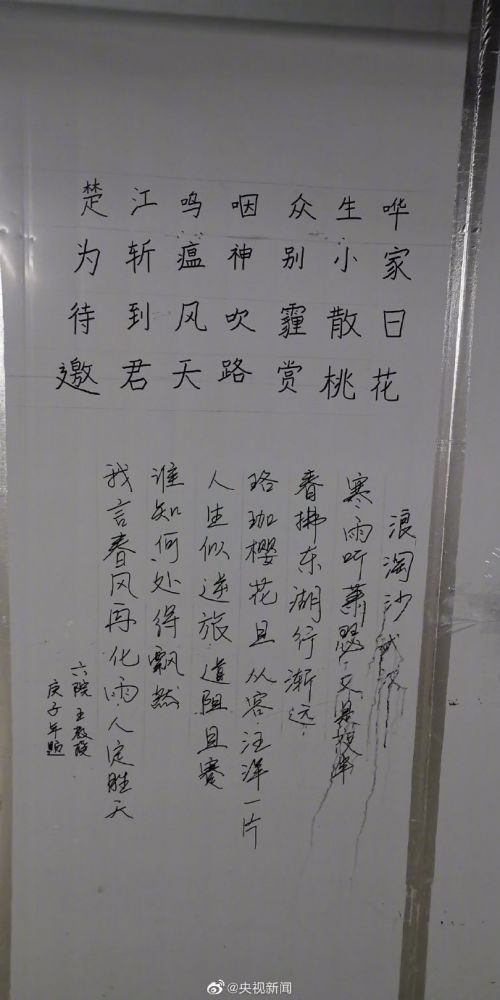 楚江鸣咽众生哗
为斩瘟神别小家
待到风吹霾散日
邀君天路赏桃花
浪淘沙 武汉
寒雨听萧瑟
春拂东湖行渐远
珞珈樱花且从容汪洋一片
人生似逆旅道阻且
谁知何处得飘然
我言春风再化雨人定胜天
六院王
庚子年题
@央视新闻